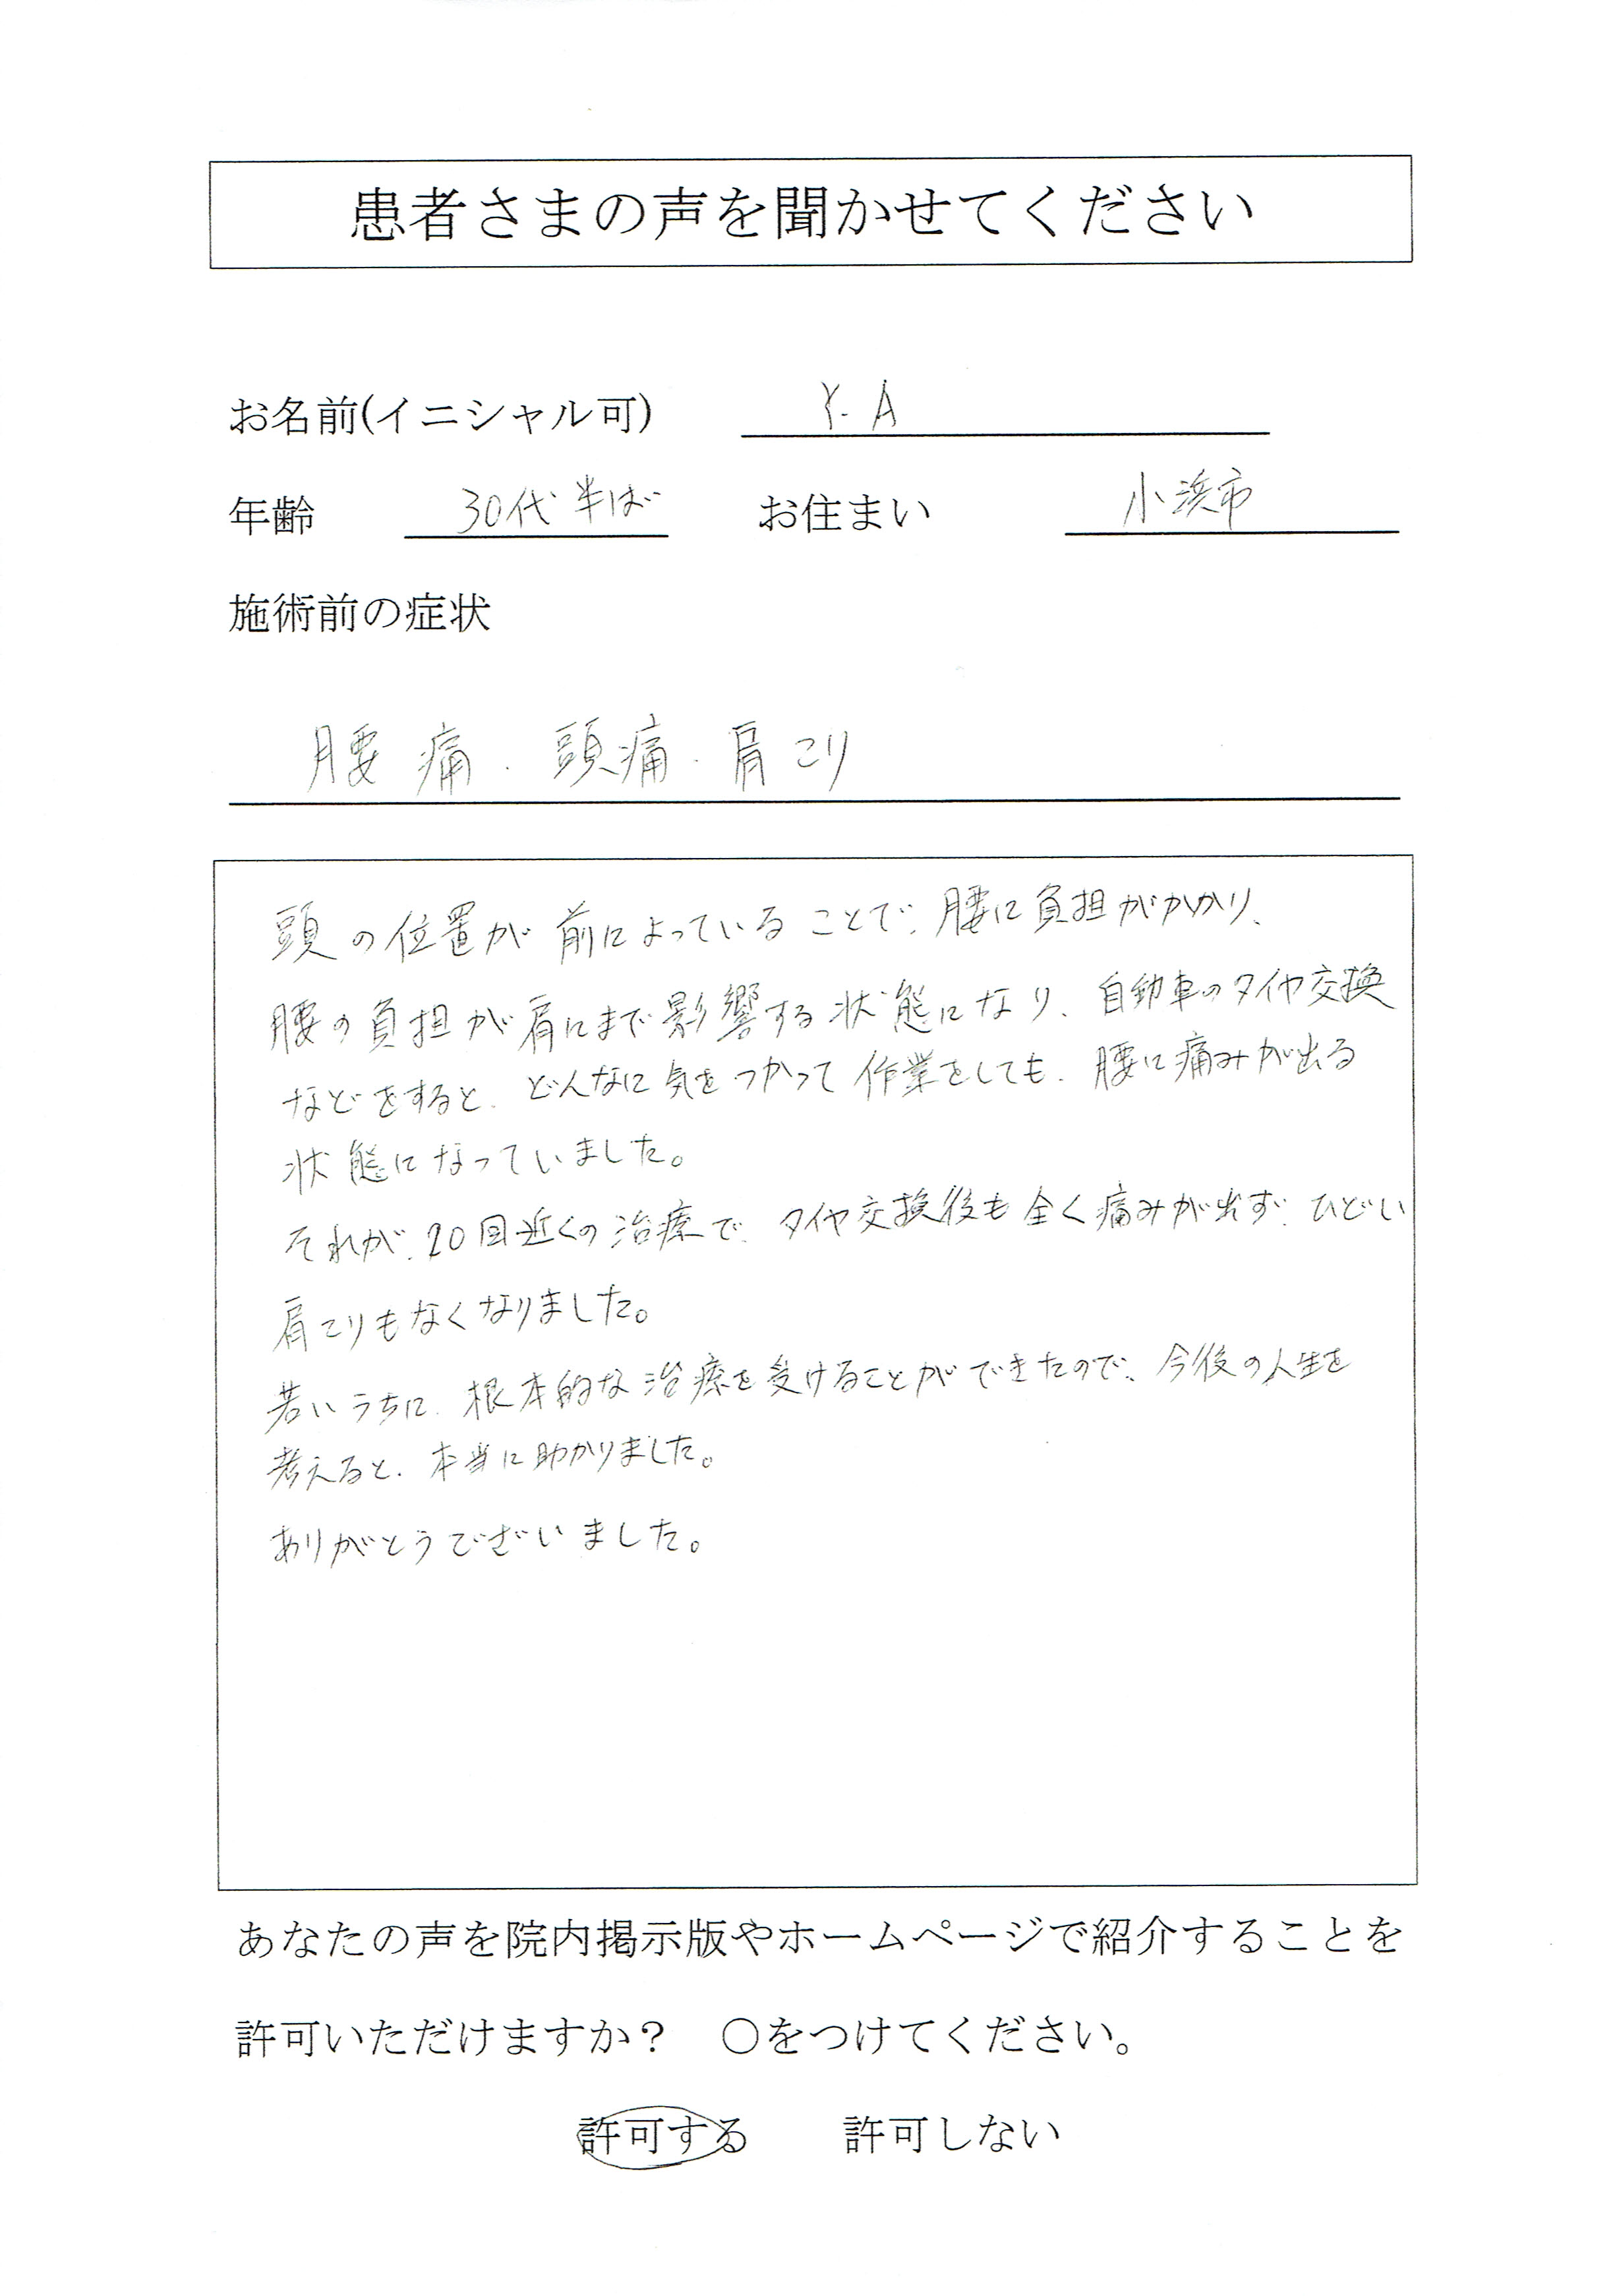 患者さまの声を聞かせてください
お名前(イニシャル可) Y.A
年齢 30代半ば お住まい 小浜市
施術前の症状
腰痛.頭痛.肩こり
頭の位置が前によっていることで、腰に負担がかかり、
腰の負担が肩にまで影響する状態になり、自動車のタイヤ交換
などをすると、どんなに気をつかって作業をしても、腰に痛みが出る
状態になっていました。
それが、20回近くの治療で、タイヤ交換後も全く痛みが出ず、ひどい
肩こりもなくなりました。
若いうちに、根本的な治療を受けることができたので、今後の人生を
考えると、本当に助かりました。
ありがとうございました。
あなたの声を院内掲示版やホームページで紹介することを
許可いただけますか? ○をつけてください。
許可する 許可しない